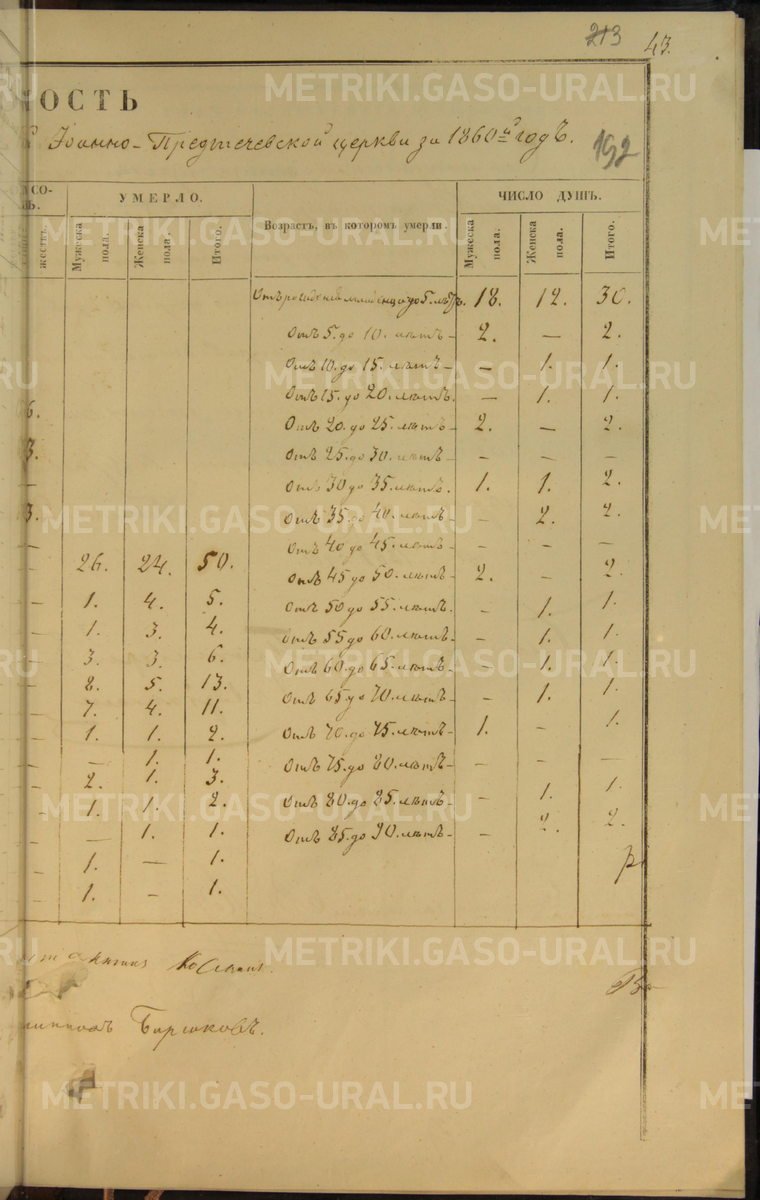 213 43.
НОСТЬ
Іоанно-Предтечевской церкви за 1860й годъ.
192
УМЕРЛО. ЧИСЛО ДУШЪ.
Мужеска пола. Женска пола. Итого. Возрастъ, въ которомъ умерли. Мужеска пола. Женска пола. Итого.
Отъ рожденія младенца до 5. лѣтъ. 18. 12. 30.
Отъ 5. до 10. лѣтъ – 2. — 2.
Отъ 10. до 15. лѣтъ – — 1. 1.
Отъ 15. до 20. лѣтъ. — 1. 1.
Отъ 20. до 25. лѣтъ – 2. — 2.
Отъ 25. до 30. лѣтъ – — — —
Отъ 30 до 35. лѣтъ. 1. 1. 2.
Отъ 35. до 40. лѣтъ – — 2. 2.
Отъ 40 до 45. лѣтъ – — — —
26. 24. 50. Отъ 45 до 50. лѣтъ – 2. — 2.
1. 4. 5. Отъ 50 до 55. лѣтъ. — 1. 1.
1. 3. 4. Отъ 55 до 60. лѣтъ – — 1. 1.
3. 3. 6. Отъ 60. до 65. лѣтъ – — 1. 1.
8. 5. 13. Отъ 65 до 70. лѣтъ – — 1. 1.
7. 4. 11.
1. 1. 2. Отъ 70 до 75. лѣтъ – 1. — 1.
— 1. 1. Отъ 75. до 80. лѣтъ – — — —
2. 1. 3.
1. 1. 2. Отъ 80. до 85. лѣтъ – — 1. 1.
— 1. 1. Отъ 85. до 90. лѣтъ – — 2. 2.
1. — 1.
1. — 1.
METRIKI.GASO-URAL.RU